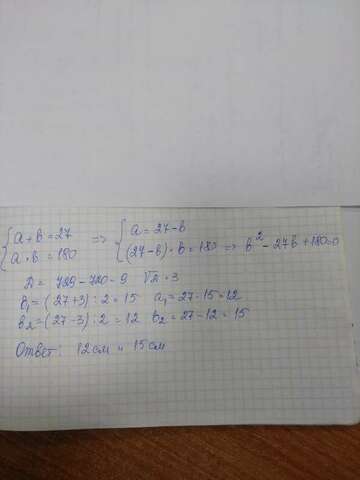 { a + b = 27 => { a = 27 - b
{ a · b = 180 { (27 - b) · b = 180 => b² - 27b + 180 = 0
D = 729 - 720 = 9 √D = 3
b₁ = (27 + 3) : 2 = 15 a₁ = 27 - 15 = 12
b₂ = (27 - 3) : 2 = 12 b₂ = 27 - 12 = 15
Ответ: 12 см и 15 см